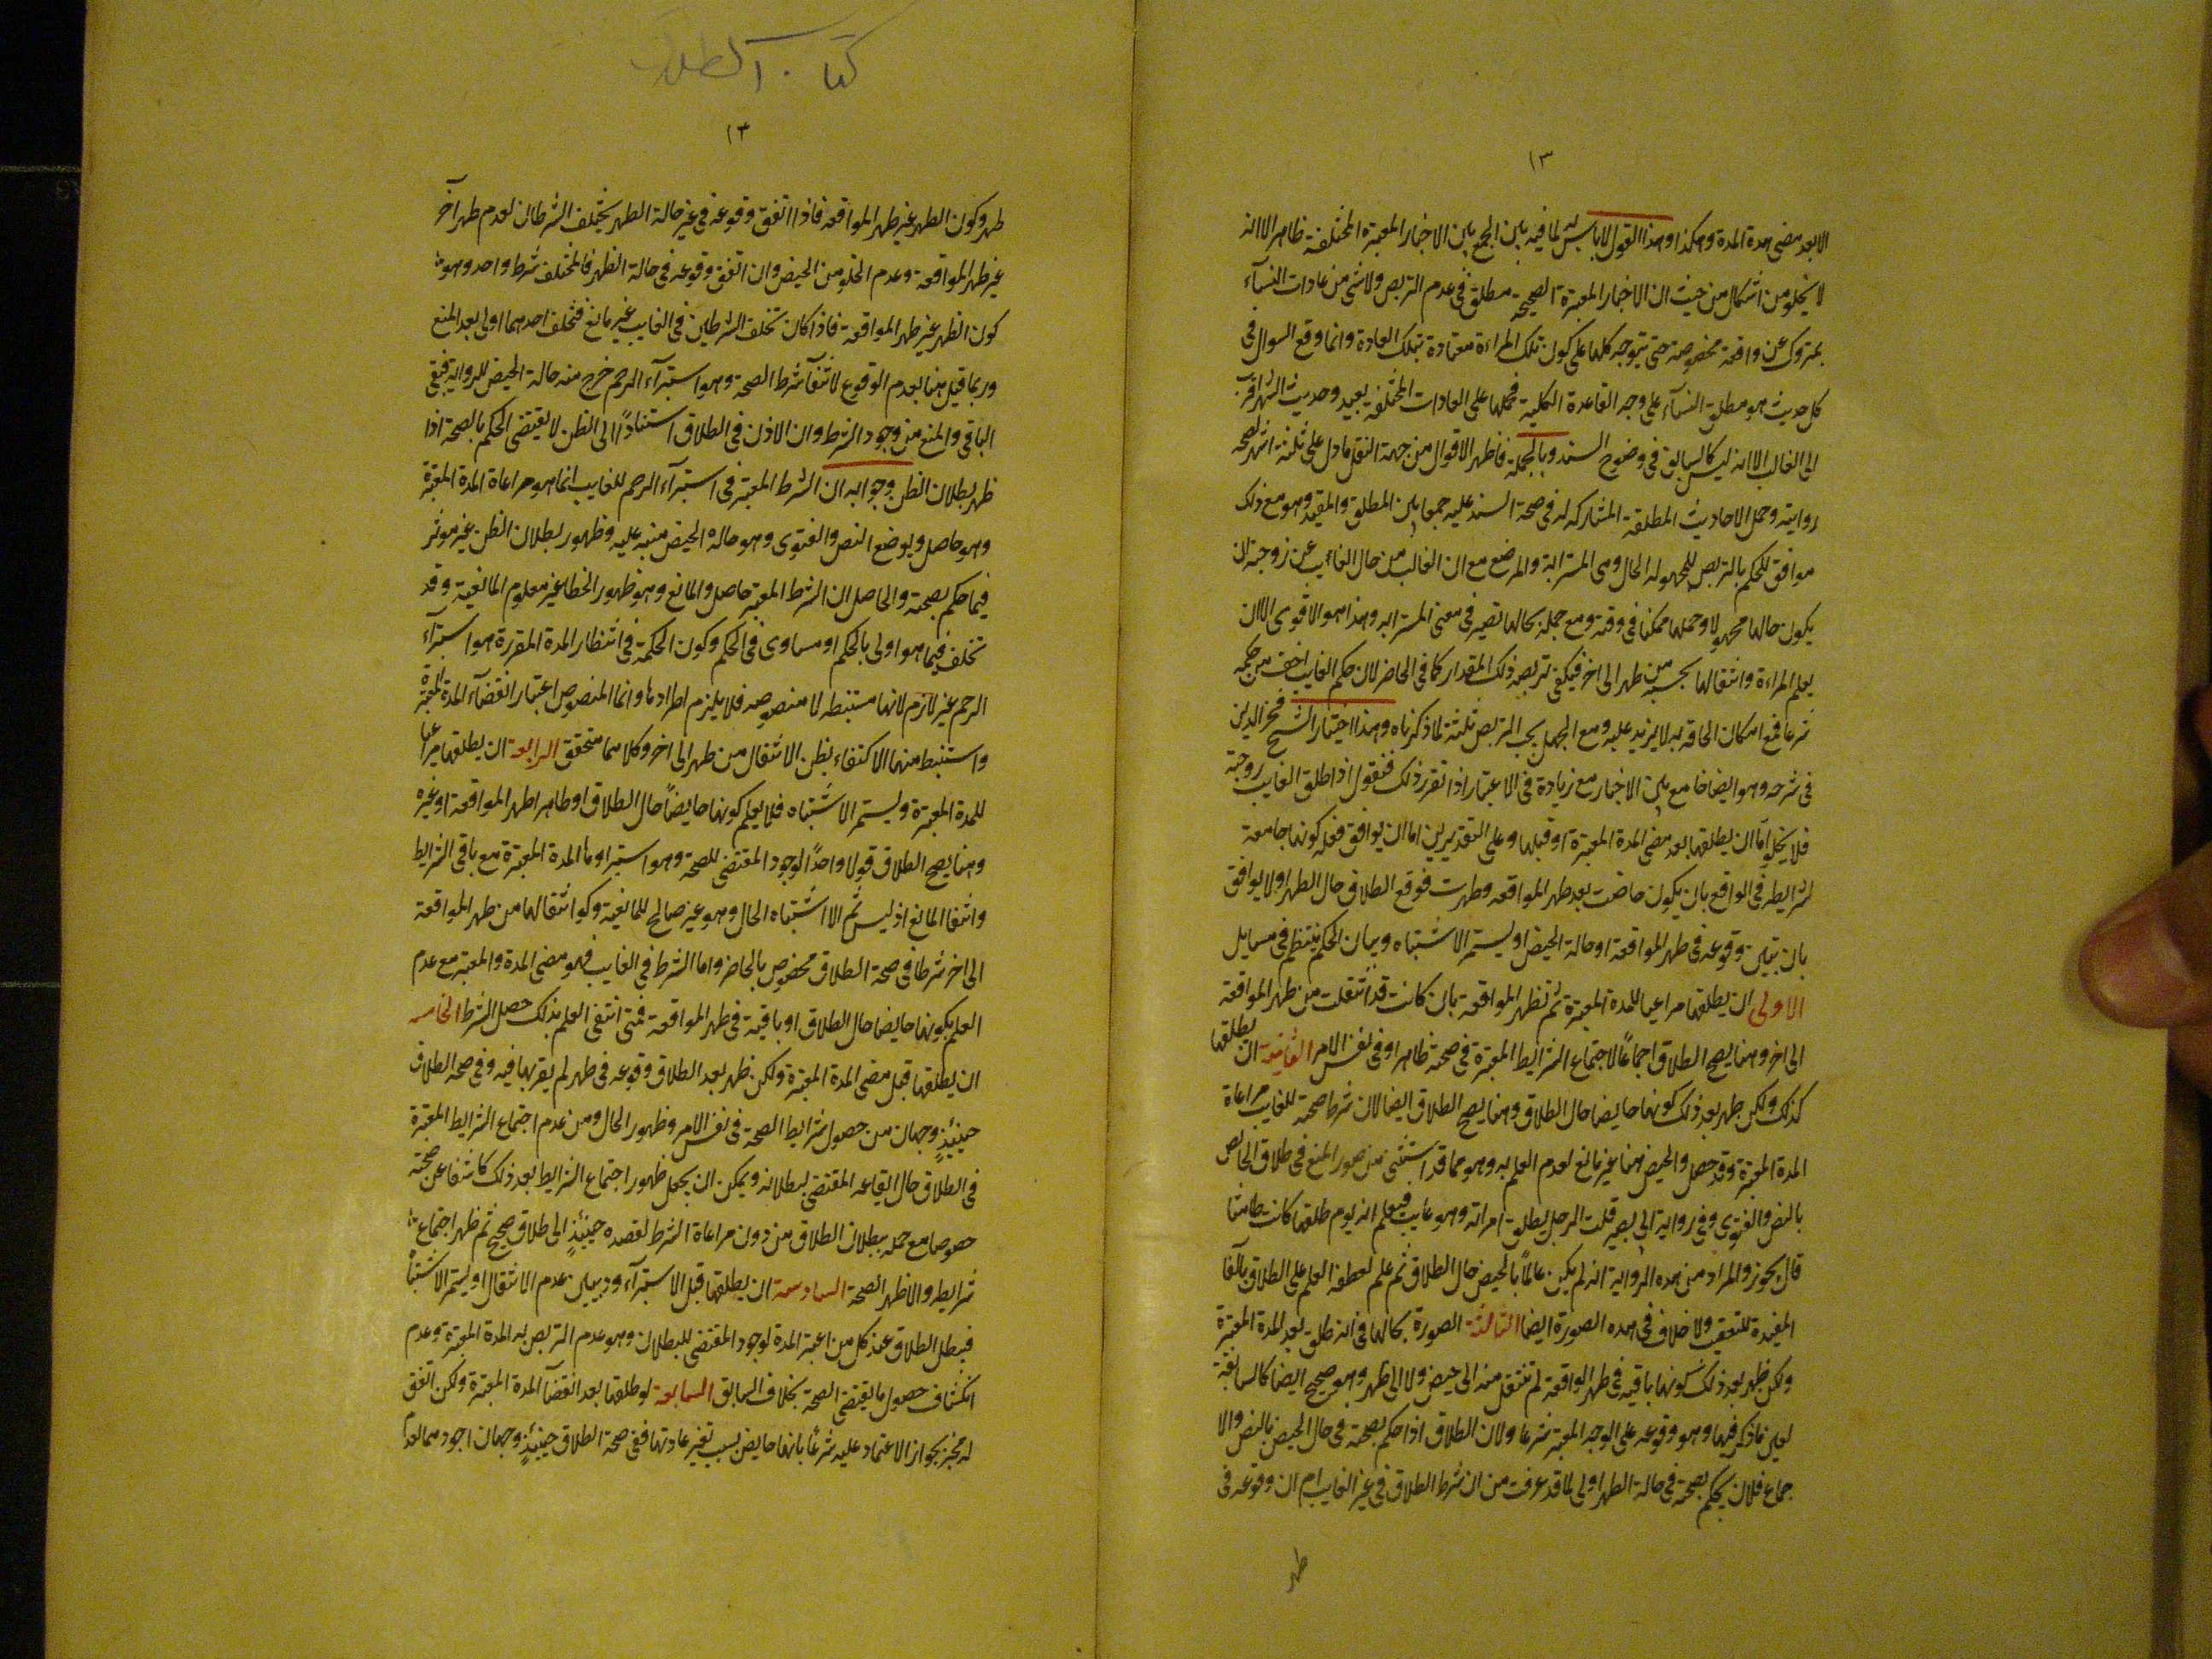 ١٣
الا بعد مضى هذه المدة وهكذا وهذا القول لا باس به لما فيه باين الجمع بين الاخبار المعتبرة المختلفة ظاهرا الا انه
لا يخلو من اشكال من حيث ان الاخبار المعتبرة الصحيحة مطلق فى عدم التربص ولا شى من عادات النسآء
بمتروك عن واقعة مخصوصة حتى يتوجه كلها على كون تلك المراءة معتادة بتلك العادة وانما وقع السوال فى
كل حديث هو مطلق النسآء على وجه القاعدة الكلية فحملها على العادات المختلفة بعيد وحديث الشهر اقرب
الى الغالب الا انه ليس كالسابق فى وضوح السند وبالجملة فاظهر الاقوال من جهة النقل ما دل على ثلثة اشهر لصحة
روايته وحمل الاحاديث المطلقة المشاركه له فى صحة السند عليه جمعا بين المطلق والمقيد وهو مع ذلك
موافق للحكم بالتربص للمجهولة الحال وهى المسترابة والمرضع مع ان الغالب من حال الغايب عن زوجته ان
يكون حالها مجهولا وحملها ممكنا فى وقته ومع جهله بحالها تصير فى معنى المسترابه وهذا هو الاقوى الا ان
يعلم المراءة وانتقالها بحسبه من طهر الى اخر فيكفى تربصه ذلك المقدار كما فى الحاضر لان حكم الغايب اخف من حكمه
شرعا فمع امكان الحاقه به لا يزيد عليه ومع الجهل يجب التربص ثلثة لما ذكرناه وهذا اختيار الشيخ فخر الدين
فى شرحه وهو ايضا جامع بين الاخبار مع زيادة فى الاعتبار اذا تقرر ذلك فنقول اذا طلق الغايب زوجته
فلا يخلو اما ان يطلقها بعد مضى المدة المعتبرة او قبلها وعلى التقديرين اما ان يوافق فعله كونها جامعة
لشرايطه فى الواقع بان يكون حاضت بعد طهر المواقعه وطهرت فوقع الطلاق حال الطهر او لا يوافق
بان تبين وقوعه فى طهر المواقعة او حالة الحيض او يستمر الاشتباه وبيان الحكم ينتظم فى مسايل
الاولى ان يطلقها مراعيا للمدة المعتبرة ثم تظهر المواقعة بان كانت قد انتقلت من طهر المواقعة
الى اخر وهنا يصح الطلاق اجماعا لاجتماع الشرايط المعتبرة فى صحة ظاهرا وفى نفس الامر الثانية ان يطلقها
كذلك ولكن ظهر بعد ذلك كونها حايضا حال الطلاق وهنا يصح الطلاق ايضا لان شرط صحة للغايب مراعاة
المدة المعتبرة وقد حصل والحيض هنا غير مانع لعدم العلم به وهو مما قد استثنى من صور المنع فى طلاق الحايض
بالنص والفتوى وفى رواية ابى بصير قلت الرجل يطلق امراته وهو غايب فيعلم انه يوم طلقها كانت طامثا
قال يجوز والمراد من هذه الرواية انه لم يكن عالما بالحيض حال الطلاق ثم علم لعطف العلم على الطلاق بالفا
المفيدة للتعقيب ولا خلاف فى هذه الصورة ايضا الثالثة الصورة بحالها فى انه طلق بعد المدة المعتبرة
ولكن ظهر بعد ذلك كونها باقيه فى طهر المواقعة لم تنتقل منه الى حيض ولا الى طهر وهو صحيح ايضا كالسابقة
لعين ما ذكر فيها وهو وقوعه على الوجه المعتبر شرعا ولان الطلاق اذا حكم بصحته فى حال الحيض بالنص والا
جماع فلان يحكم بصحته فى حالة الطهر اولى لما قد عرفت من ان شرط الطلاق فى غير الغايب امران وقوعه فى
طهر
كتاب الطلاق
١٤
طهر وكون الطهر غير طهر المواقعه فاذا اتفق وقوعه فى غير حالة الطهر تخلف الشرطان لعدم طهر آخر
غير طهر المواقعة وعدم الخلو من الحيض وان اتفق وقوعه فى حالة الطهر فالمختلف شرط واحد وهو
كون الطهر غير طهر المواقعة فاذا كان تخلف الشرطين فى الغايب غير مانع فتخلف احدهما اولى بعد المنع
وربما قيل هنا بعدم الوقوع لانتفآء شرط الصحة وهو استبرآء الرحم خرج منه حالة الحيض للرواية فيبقى
الباقى والمنع من وجود الشرط وان الاذن فى الطلاق استنادًا الى الظن لا يقتضى الحكم بالصحة اذا
ظهر بطلان الظن وجوابه ان الشرط المعتبر فى استبرآء الرحم للغايب انما هو مراعاة المدة المعتبرة
وهو حاصل وبوضع النص والفتوى وهو حالة الحيض منبه عليه وظهور بطلان الظن غير موثر
فيما حكم بصحته والحاصل ان الشرط المعتبر حاصل والمانع وهو ظهور الخطا غير معلوم المانعية وقد
تخلف فيما هو اولى بالحكم او مساوى فى الحكم وكون الحكمة فى انتظار المدة المقررة هو استبرآء
الرحم غير لازم لانها مستنبطه لا منصوصه فلا يلزم اطرادها وانما المنصوص اعتبار انقضآء المدة المعتبرة
واستنبط منهما الاكتفاء بظن الانتقال من طهر الى اخر وكلاهما متحقق الرابعة ان يطلقها مراعيا
للمدة المعتبرة ويستمر الاشتباه فلا يعلم كونها حايضًا حال الطلاق او طاهرا طهر المواقعة او غيره
وهنا يصح الطلاق قولا واحدًا لوجود المقتضى للصحة وهو استبراوها المدة المعتبرة مع باقى الشرايط
وانتفا المانع اذ ليس ثم الا اشتباه الحال وهو غير صالح للمانعية وكون انتقالها من طهر المواقعة
الى اخر شرطا فى صحة الطلاق مخصوص بالحاضر واما الشرط فى الغايب فهو مضى المدة والمعتبر مع عدم
العلم بكونها حايضا حال الطلاق او باقية فى طهر المواقعة فمتى انتفى العلم بذلك حصل الشرط الخامسه
ان يطلقها قبل مضى المدة المعتبرة ولكن ظهر بعد الطلاق وقوعه فى طهر لم يقربها فيه وفى صحة الطلاق
حينئذٍ وجهان من حصول شرايط الصحة فى نفس الامر وظهور الحال ومن عدم اجتماع الشرايط المعتبرة
فى الطلاق حال ايقاعه المقتضى لبطلانه ويمكن ان يجعل ظهور اجتماع الشرايط بعد ذلك كاشفا عن صحته
خصوصا مع جهله ببطلان الطلاق من دون مراعاة الشرط لقصده حينئذٍ الى طلاق صحيح ثم ظهر اجتماع
شرايطه والاظهر الصحة السادسة ان يطلقها قبل الاستبرآء وتبين عدم الانتقال او يستمر الاشتباه
فيبطل الطلاق عند كل من اعتبر المدة لوجود المقتضى للبطلان وهو عدم التربص به المدة المعتبرة وعدم
انكشاف حصول ما يقتضى الصحة بخلاف السابق السابعة لو طلقها بعد انقضآ المدة المعتبرة ولكن اتفق
له مخبر بجواز الاعتماد عليه شرعًا بانها حايض بسبب تغير عادتها ففى صحة الطلاق حينئذٍ وجهان اجودهما العدم